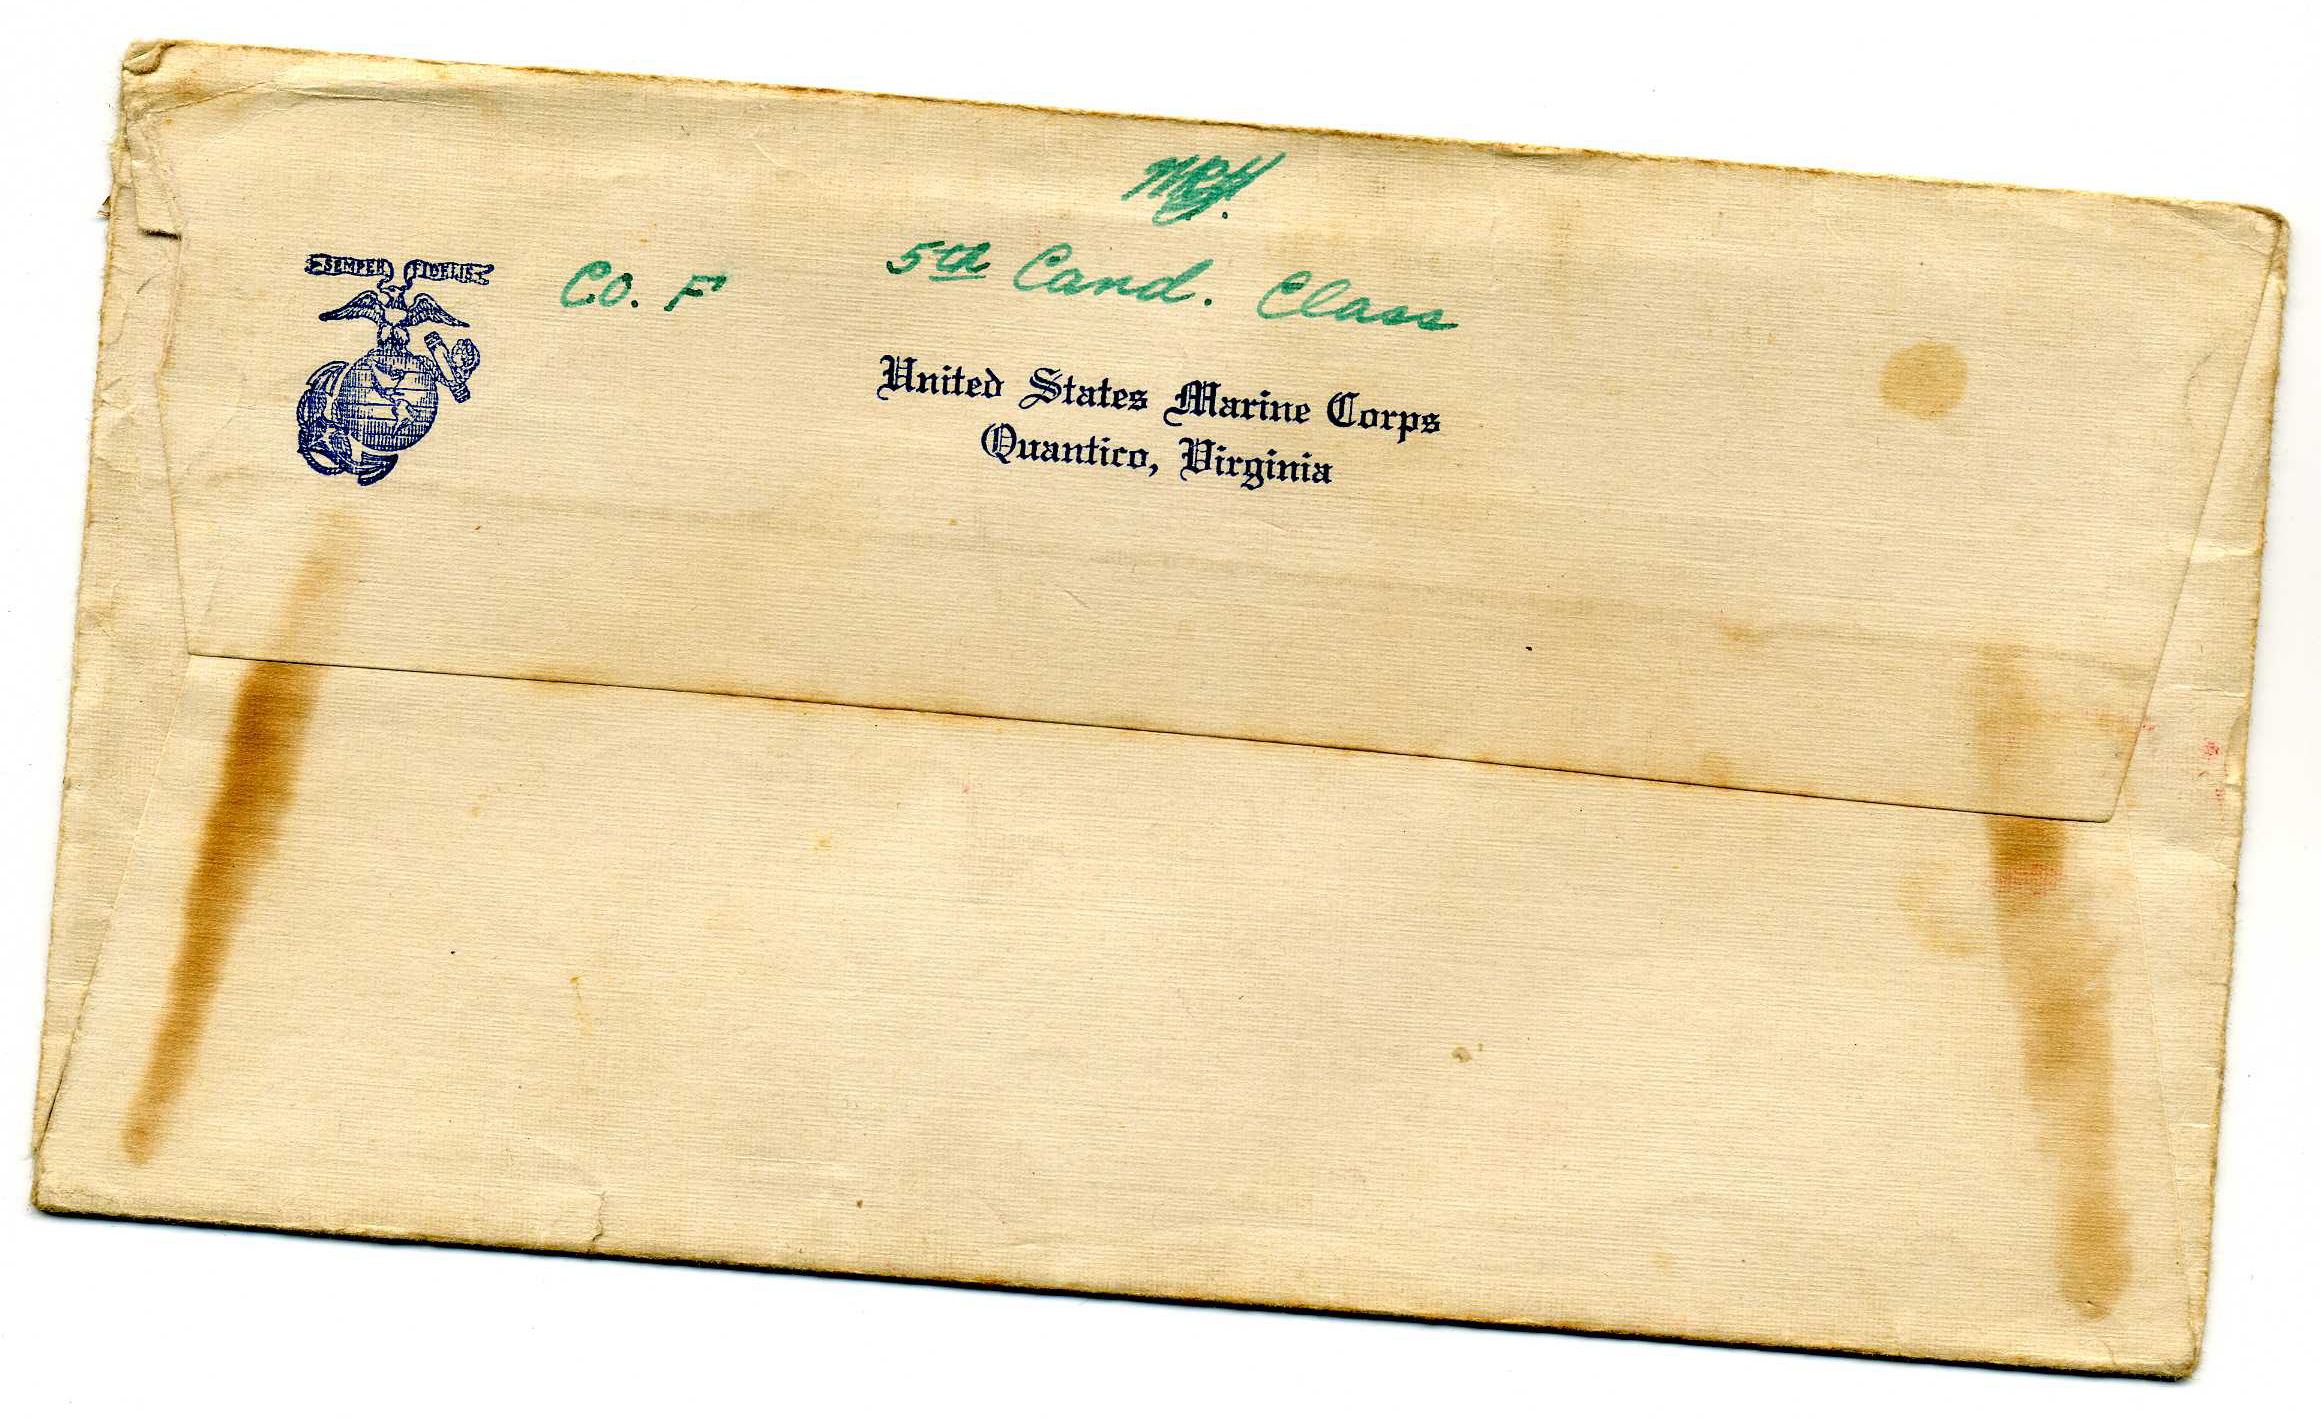 SEMPER FIDELIS
Co. F 5th Cand. Class
United States Marine Corps
Quantico, Virginia